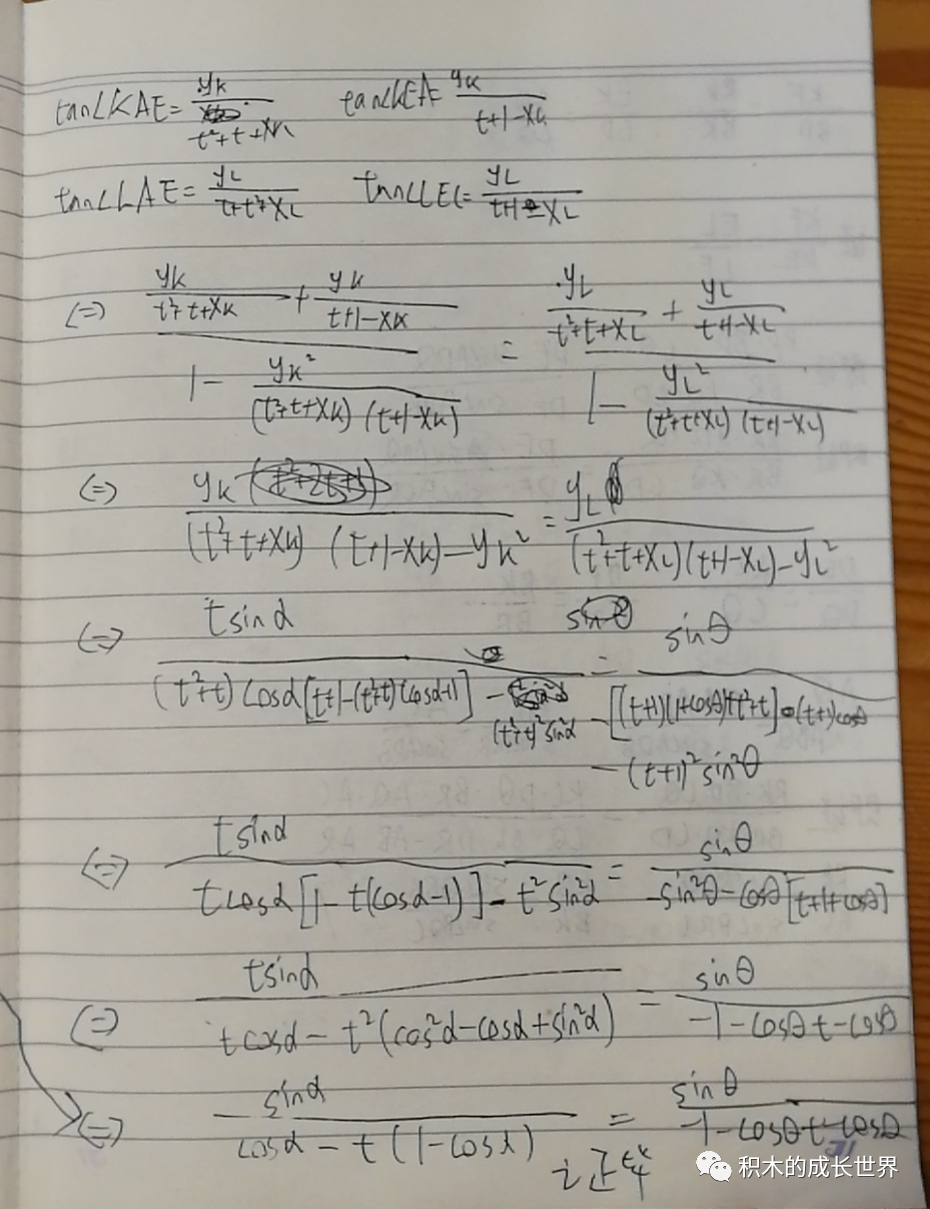 tan∠KAE = yK/(t²+t+xK) tan∠KEA = yK/(t+1-xK)
tan∠LAE = yL/(t+t²+xL) tan∠LE = yL/(t+1-xL)
(=) (yK/(t²+t+xK) + yK/(t+1-xK))/(1 - yK²/((t²+t+xK)(t+1-xK))) = (yL/(t²+t+xL) + yL/(t+1-xL))/(1 - yL²/((t²+t+xL)(t+1-xL)))
(=) yK/((t²+t+xK)(t+1-xK)-yK²) = yL/((t²+t+xL)(t+1-xL)-yL²)
(=) tsinα/((t²+t)cosα[t+1-(t²+t)(cosα-1)] - (t²+t)²sin²α) = sinθ/(-[(t+1)(1+cosθ)+t²+t](t+1)cosθ - (t+1)²sin²θ)
(=) tsinα/(tcosα[1-t(cosα-1)]-t²sin²α) = sinθ/(-sin²θ-cosθ[t+1+cosθ])
(=) tsinα/(tcosα-t²(cos²α-cosα+sin²α)) = sinθ/(-1-cosθt-cosθ)
(=) sinα/(cosα-t(1-cosα)) = sinθ/(-1-cosθt-cosθ)
积木的成长世界